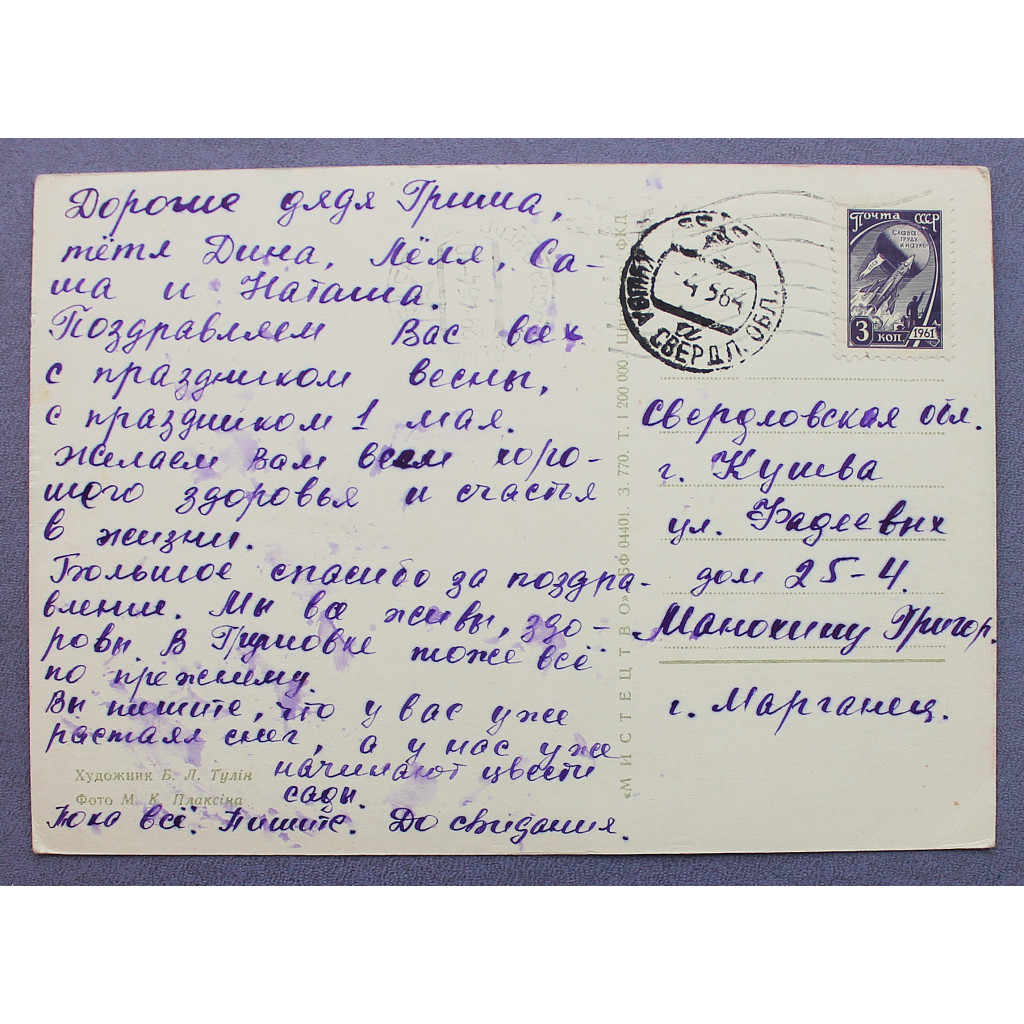 Дорогие дядя Гриша,
тётя Дина, Лёля, Са-
ша и Наташа.
Поздравляем Вас всех
с праздником весны,
с праздником 1 мая.
Желаем Вам всем хоро-
шого здоровья и счастья
в жизни.
Большое спасибо за поздра-
вление. Мы все живы, здо-
ровы. В Грушовке тоже всё
по прежниму.
Вы пишите, что у вас уже
растаял снег, а у нас уже
начинают цвести
сады.
Пока всё. Пишите. До свидания.
Художник Б. Л. Тулін
Фото М. К. Плаксіна
«МИСТЕЦТВО» БФ 04401. З. 770. Т. 1 200 000 ФКД
КУШВА СВЕРДЛ. ОБЛ.
-4 5 64
Почта СССР
Слава
труду
и науке
3 коп
1961
Свердловская обл.
г. Кушва
ул. Фадеевых
дом 25-4.
Манохину Григор.
г. Марганец.